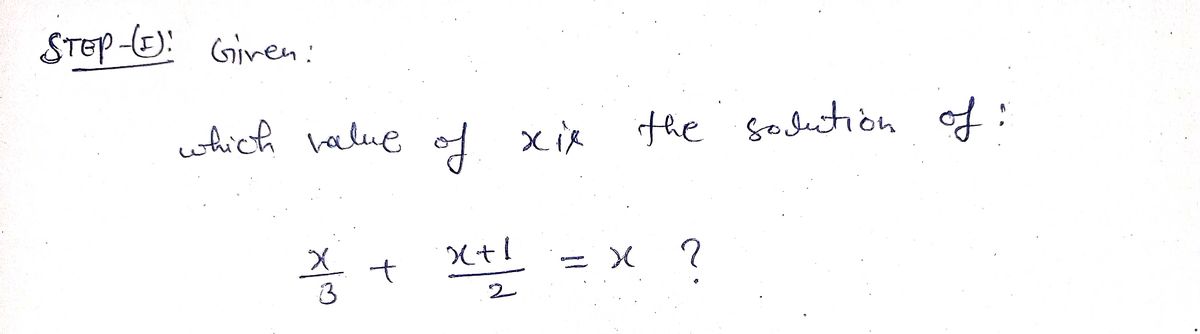 STEP-(I): Given:
which value of x is the solution of:
x/3 + x+1/2 = x ?